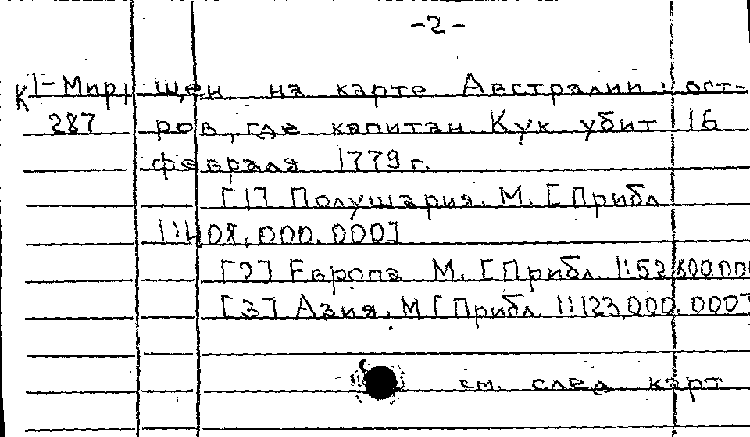 -2-
К1-Мир, щен на карте Австралии: ост-
287 ров, где капитан Кук убит 16
февраля 1779 г.
[1] Полушария. М. [Прибл.
1:108,000.000]
[2] Европа М. [Прибл. 1:52,600000
[3] Азия. М [Прибл. 1:123,000.000]
см. след карт